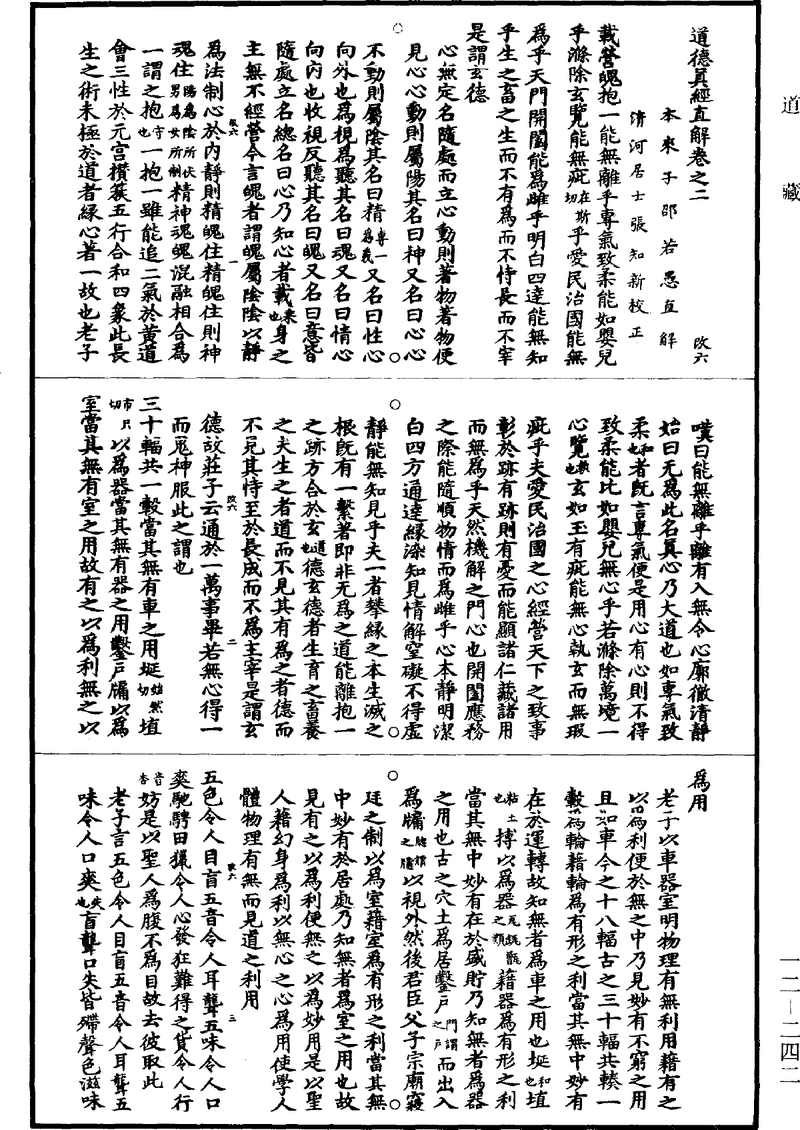 道藏
道德真經直解卷之二
改六
本來子邵若愚直解
清河居士張知新校正
載營魄抱一能無離乎專氣致柔能如嬰兒
乎滌除玄覽能無疵在斯切乎愛民治國能無
為乎天門開闔能為雌乎明白四達能無知
乎生之畜之生而不有為而不恃長而不宰
是謂玄德
心無定名隨處而立心動則著物著物便
見心心動則屬陽其名曰神又名曰心心
不動則屬陰其名曰精專一為義又名曰性心
向外也為視為聽其名曰魂又名曰情心
向內也收視反聽其名曰魄又名曰意皆
隨處立名總名曰心乃知心者載乘也身之
主無不經營今言魄者謂魄屬陰陰以靜
改六
一
為法制心於內靜則精魄住精魄住則神
魂住陽為陰所伏男為女所制精神魂魄混融相合為
一謂之抱守也一抱一雖能追二氣於黃道
會三性於元宮攢簇五行合和四象此長
生之術未極於道者緣心著一故也老子
嘆曰能無離乎離有入無令心廓徹清靜
始曰无為此名真心乃大道也如專氣致
柔和也者既言專氣便是用心有心則不得
致柔能比如嬰兒無心乎若滌除萬境一
心覽觀也玄如玉有疵能無心執玄而無瑕
疵乎夫愛民治國之心經營天下之致事
彰於跡有跡則有憂而能顯諸仁藏諸用
而無為乎天然機解之門心也開闔應務
之際能隨順物情而為雌乎心本靜明潔
白四方通達緣染知見情解窒礙不得虛
靜能無知見乎夫一者攀緣之本生滅之
根既有一繫著即非无為之道能離抱一
之跡方合於玄道也德玄德者生育之畜養
之夫生之者道而不見其有為之者德而
不見其恃至於長成而不為主宰是謂玄
改六
二
德故莊子云通於一萬事畢若無心得一
而鬼神服此之謂也
三十輻共一轂當其無有車之用埏始然切埴
市只切以為器當其無有器之用鑿戶牖以為
室當其無有室之用故有之以為利無之以
為用
老子以車器室明物理有無利用藉有之
以為利便於無之中乃見妙有不窮之用
且如車今之十八輻古之三十輻共輳一
轂為輪藉輪為有形之利當其無中妙有
在於運轉故知無者為車之用也埏和也埴
粘土也摶以為器瓦甌甑之類藉器為有形之利
當其無中妙有在於盛貯乃知無者為器
之用也古之穴土為居鑿戶門謂之戶而出入
為牖之牖以視外然後君臣父子宗廟寢
廷之制以為室藉室為有形之利當其無
中妙有於居處乃知無者為室之用也故
見有之以為利便無之以為妙用是以聖
人藉幻身為利以無心之心為用使學人
體物理有無而見道之利用
改六
三
五色令人目盲五音令人耳聾五味令人口
爽馳騁田獵令人心發狂難得之貨令人行
妨音是以聖人為腹不為目故去彼取此
老子言五色令人目盲五音令人耳聾五
味令人口爽失也盲聾口失皆殢聲色滋味
一二－二四二